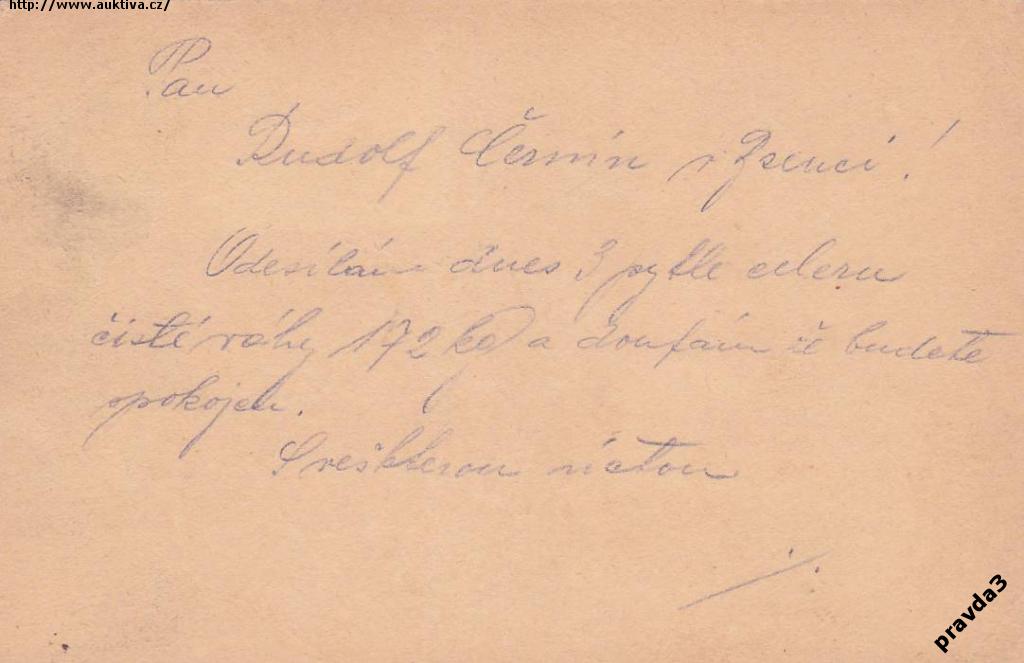 http://www.auktiva.cz/
Pan
Rudolf Čermín v !
Odesílám dnes 3 pytle celeru
čisté váhy 172 kg a doufám že budete
spokojen.
S veškterou úctou
pravda3